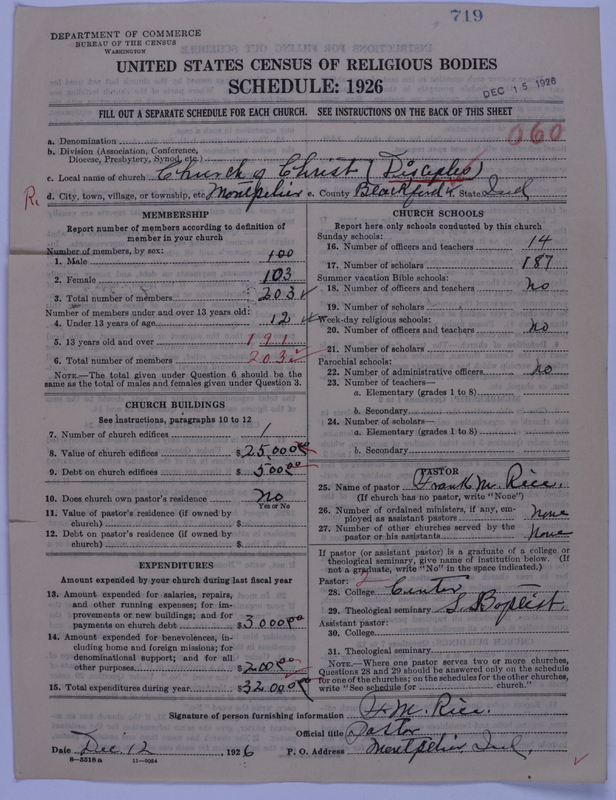 719
DEPARTMENT OF COMMERCE
BUREAU OF THE CENSUS
WASHINGTON
UNITED STATES CENSUS OF RELIGIOUS BODIES
SCHEDULE: 1926
DEC 15 1926
FILL OUT A SEPARATE SCHEDULE FOR EACH CHURCH. SEE INSTRUCTIONS ON THE BACK OF THIS SHEET
060
a. Denomination
b. Division (Association, Conference, Diocese, Presbytery, Synod, etc.)
c. Local name of church Church of Christ (Disciples)
R. d. City, town, village, or township, etc. Montpelier e. County Blackford f. State Ind
MEMBERSHIP
Report number of members according to definition of member in your church
Number of members, by sex:
1. Male 100
2. Female 103
3. Total number of members 203
Number of members under and over 13 years old:
4. Under 13 years of age 12
5. 13 years old and over 191
6. Total number of members 203
NOTE.—The total given under Question 6 should be the same as the total of males and females given under Question 3.
CHURCH BUILDINGS
See instructions, paragraphs 10 to 12
7. Number of church edifices 1
8. Value of church edifices $25,000.00
9. Debt on church edifices $500.00
10. Does church own pastor's residence No
Yes or No
11. Value of pastor's residence (if owned by church) $
12. Debt on pastor's residence (if owned by church) $
EXPENDITURES
Amount expended by your church during last fiscal year
13. Amount expended for salaries, repairs, and other running expenses; for improvements or new buildings; and for payments on church debt $3000.00
14. Amount expended for benevolences, including home and foreign missions; for denominational support; and for all other purposes $200.00
15. Total expenditures during year $3200.00
CHURCH SCHOOLS
Report here only schools conducted by this church
Sunday schools:
16. Number of officers and teachers 14
17. Number of scholars 187
Summer vacation Bible schools:
18. Number of officers and teachers No
19. Number of scholars
Week-day religious schools:
20. Number of officers and teachers No
21. Number of scholars
Parochial schools:
22. Number of administrative officers No
23. Number of teachers—
a. Elementary (grades 1 to 8)
b. Secondary
24. Number of scholars—
a. Elementary (grades 1 to 8)
b. Secondary
PASTOR
25. Name of pastor Frank M. Rice.
(If church has no pastor, write "None")
26. Number of ordained ministers, if any, employed as assistant pastors None
27. Number of other churches served by the pastor or his assistants None
If pastor (or assistant pastor) is a graduate of a college or theological seminary, give name of institution below. (If not a graduate, write "No" in the space indicated.)
Pastor:
28. College
29. Theological seminary S. Baptist.
Assistant pastor:
30. College
31. Theological seminary
NOTE.—Where one pastor serves two or more churches, Questions 28 and 29 should be answered only on the schedule for one of the churches; on the schedules for the other churches, write "See schedule for church."
Signature of person furnishing information F. M. Rice.
Official title Pastor
Date Dec. 12, 1926 P. O. Address Montpelier, Ind.
8-5518a 11-9054